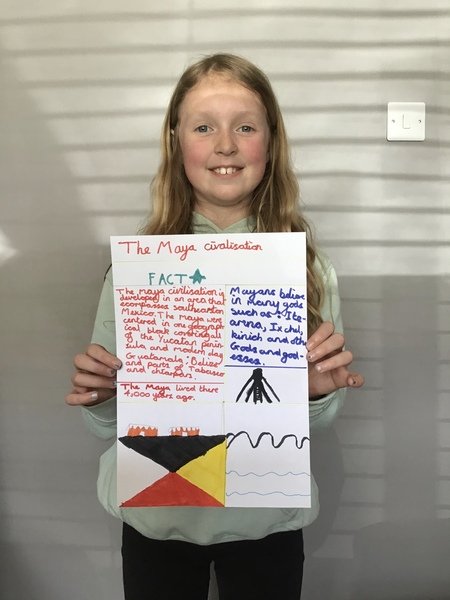 The Maya civilisation
FACT
The maya civilisation is
developed in an area that
encompasses southeastern
Mexico. The maya were
centered in one geograph
ical block covering all
of the Yucatan penin-
sula and modern day
Guatamala; Belize
and parts of Tabasco
and chiapas.
The Maya lived there
4,000 years ago.
Mayans believe
in many gods
such as: Itz-
amna, Ix chel,
kinich and other
Gods and god-
esses.